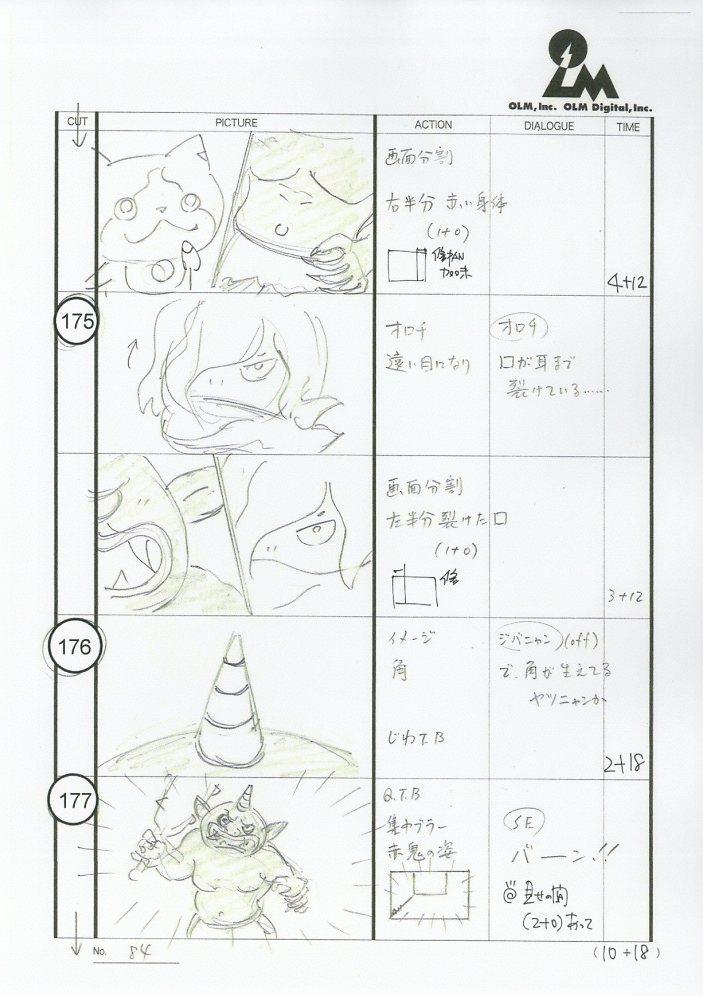 OLM, Inc. OLM Digital, Inc.
CUT PICTURE ACTION DIALOGUE TIME
画面分割
右半分 赤い身体
(1+0)
4+12
175
オロチ
遠い目になり
オロチ
口が耳まで
裂けている……
画面分割
左半分 裂けた口
(1+0)
3+12
176
イメージ
角
じわT.B
ジバニャン (off)
で、角が生えてる
ヤツニャンか
2+18
177
Q.T.B
集中ブラー
赤鬼の姿
SE
バーン!!
(2+0) あって
No. 84
(10+18)